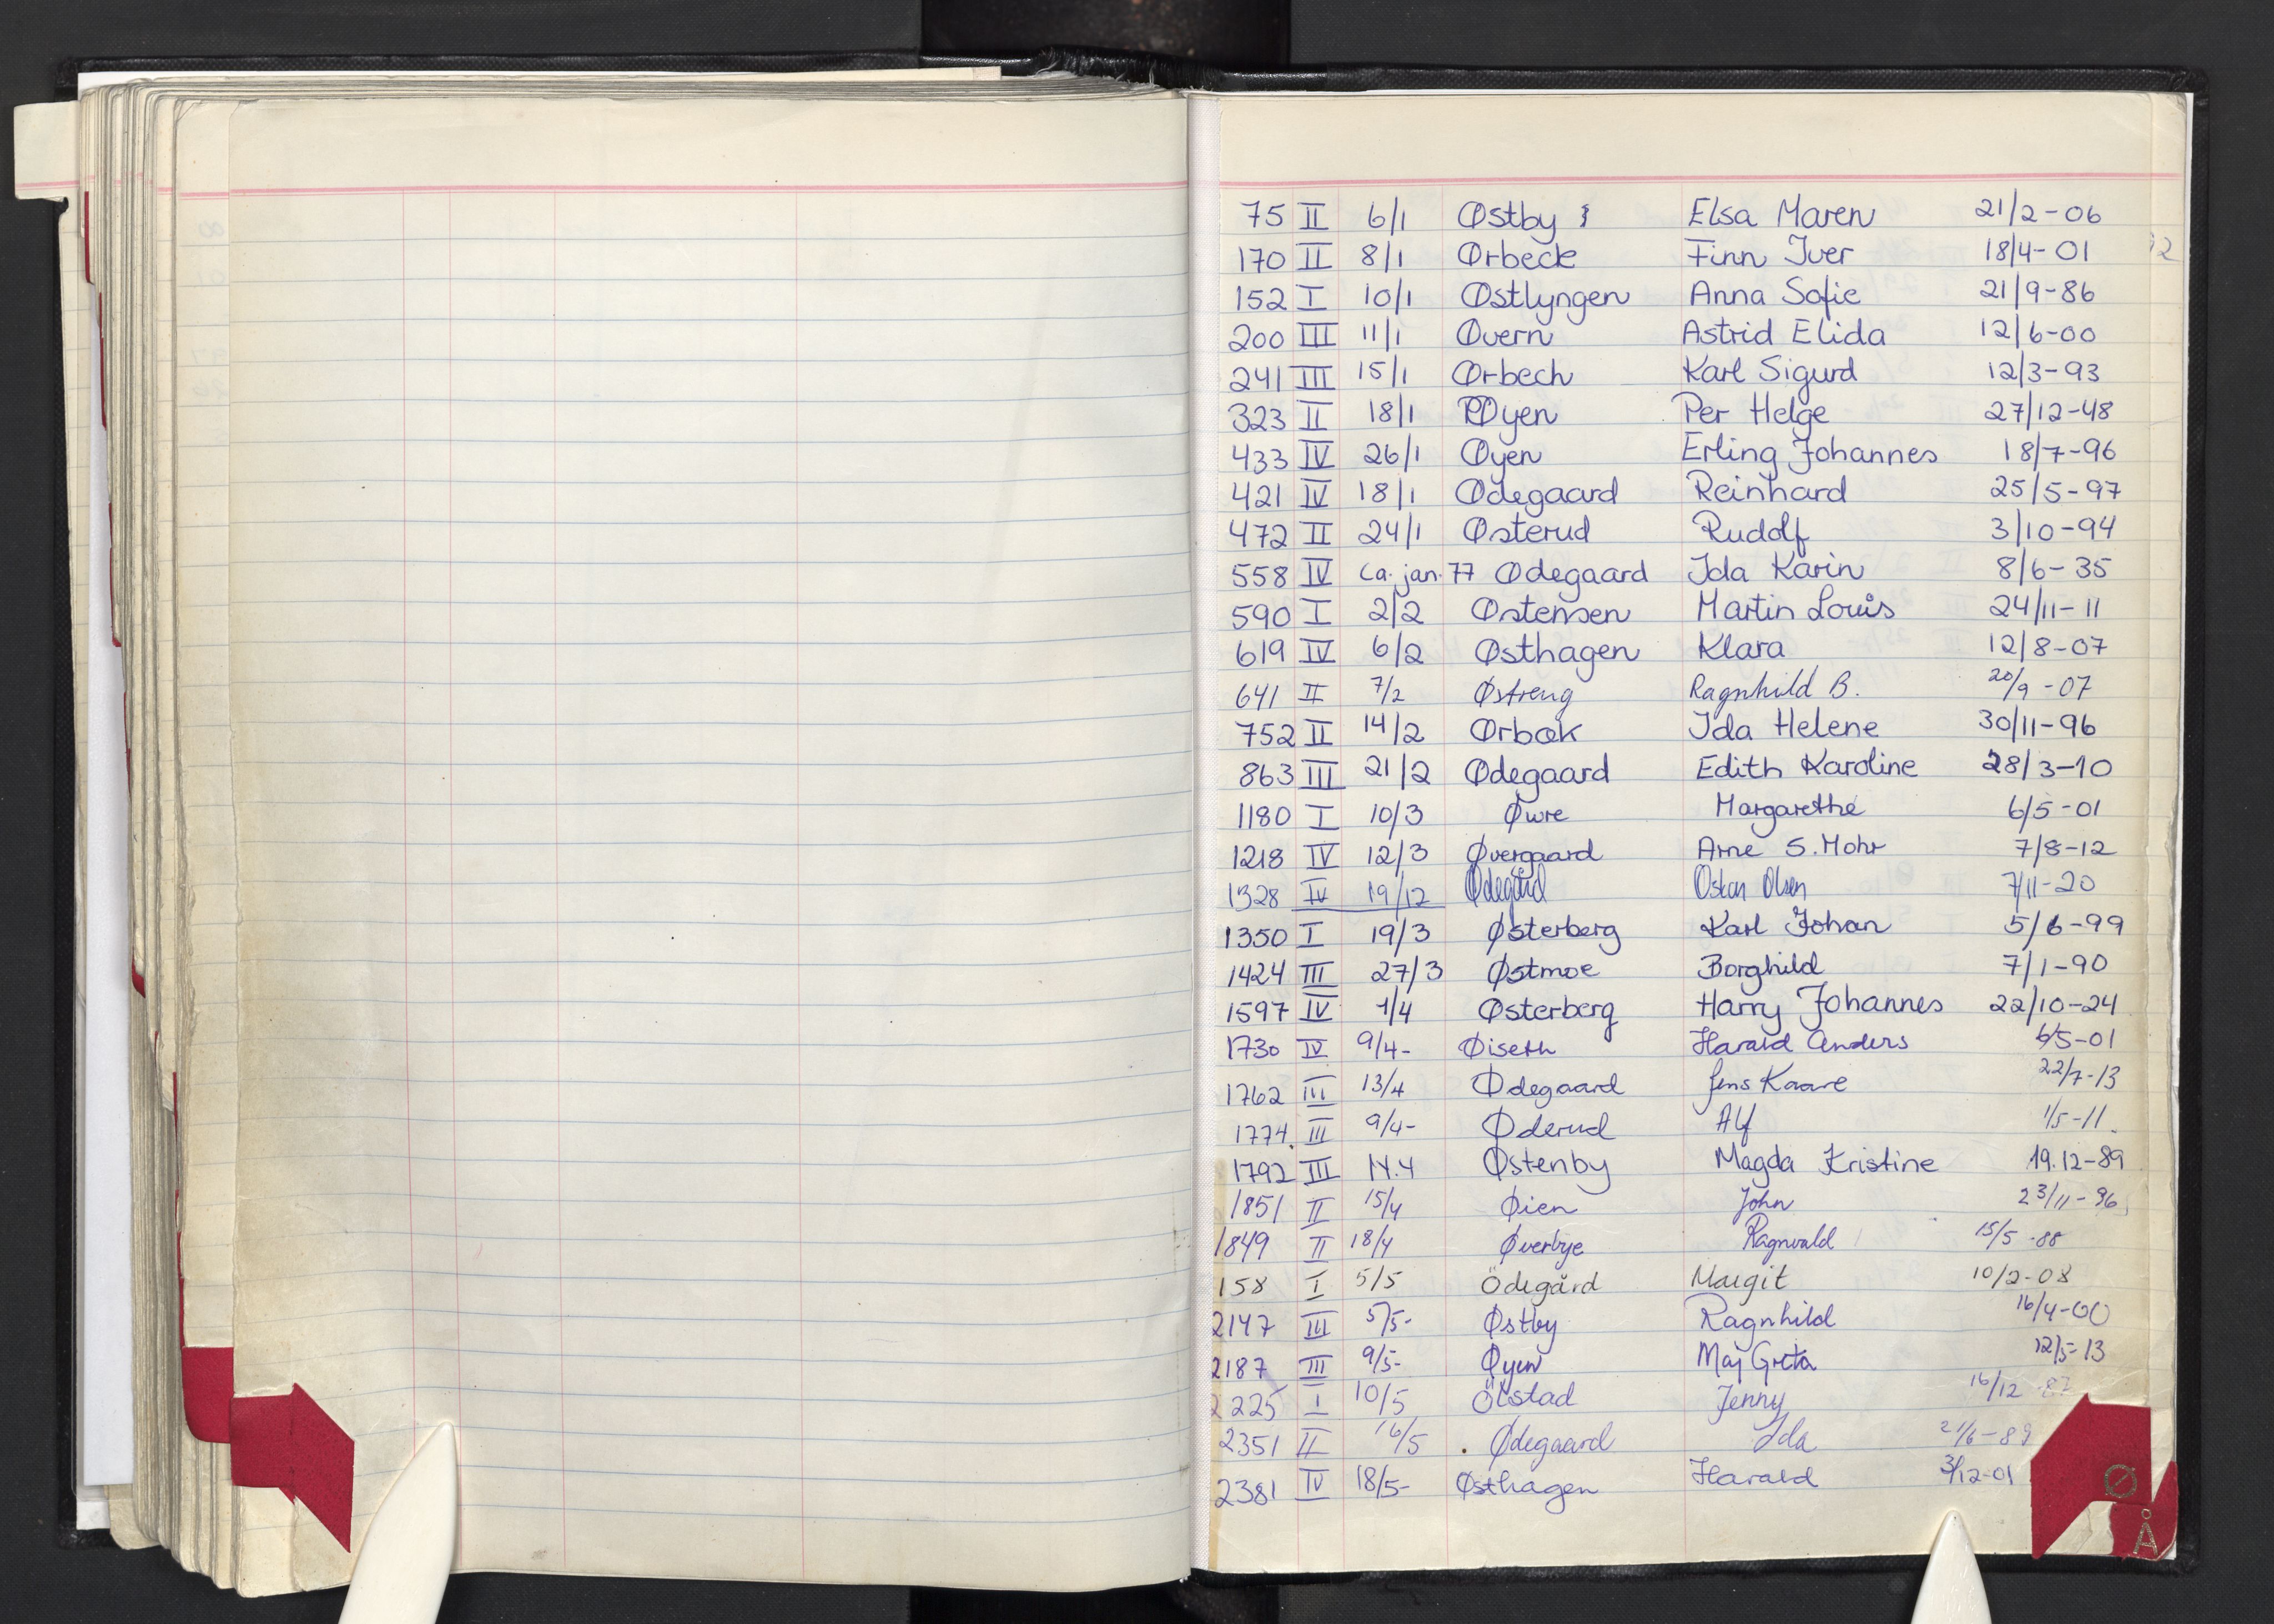 75 II 6/1 Østby Elsa Maren 21/2-06
170 II 8/1 Ørbeck Finn Iver 18/4-01
152 I 10/1 Østlyngen Anna Sofie 21/9-86
200 III 11/1 Øvern Astrid Elida 12/6-00
241 III 15/1 Ørbech Karl Sigurd 12/3-93
323 II 18/1 Øyen Per Helge 27/12-48
433 IV 26/1 Øyen Erling Johannes 18/7-96
421 IV 18/1 Ødegaard Reinhard 25/5-97
472 II 24/1 Østerud Rudolf 3/10-94
558 IV Ca. jan. 77 Ødegaard Ida Karin 8/6-35
590 I 2/2 Østensen Martin Louis 24/11-11
619 IV 6/2 Østhagen Klara 12/8-07
641 II 7/2 Østreng Ragnhild B. 20/9-07
752 II 14/2 Ørbæk Ida Helene 30/11-96
863 III 21/2 Ødegaard Edith Karoline 28/3-10
1180 I 10/3 Øwre Margarethe 6/5-01
1218 IV 12/3 Øvergaard Arne S. Mohr 7/8-12
1328 IV 19/12 Ødegård Oskar Olsen 7/11-20
1350 I 19/3 Østerberg Karl Johan 5/6-99
1424 III 27/3 Østmoe Borghild 7/1-90
1597 IV 1/4 Østerberg Harry Johannes 22/10-24
1730 IV 9/4- Øiseth Harald Anders 6/5-01
1762 III 13/4 Ødegaard Jens Kaare 22/7-13
1774. III 9/4- Øderud Alf 1/5-11.
1792 III 14.4 Østenby Magda Kristine 19.12-89
1851 II 15/4 Øien John 23/11-96
1849 II 18/4 Øverbye Ragnvald 15/5-88
158 I 5/5 Ödegård Margit 10/2-08
2147 III 5/5- Østby Ragnhild 16/4-00
2187 III 9/5- Øyen Maj Greta 12/5-13
2225 I 10/5 Ölstad Jenny 16/12-87
2351 II 16/5 Ødegaard Ida 21/6-89
2381 IV 18/5- Østhagen Harald 3/12-01
Ø
Å